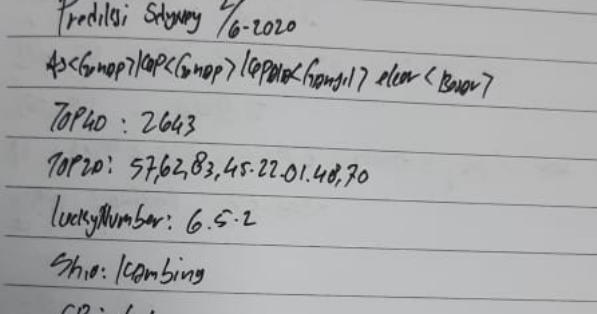 Prediksi Sdyney 2/6-2020
As<Genap>KOP<Genap>Kepala<Ganjil> ekor<Besar>
TOP4D : 2643
TOP2D: 57,62,83,45.22.01.48,70
LuckyNumber: 6.5.2
Shio: Kambing